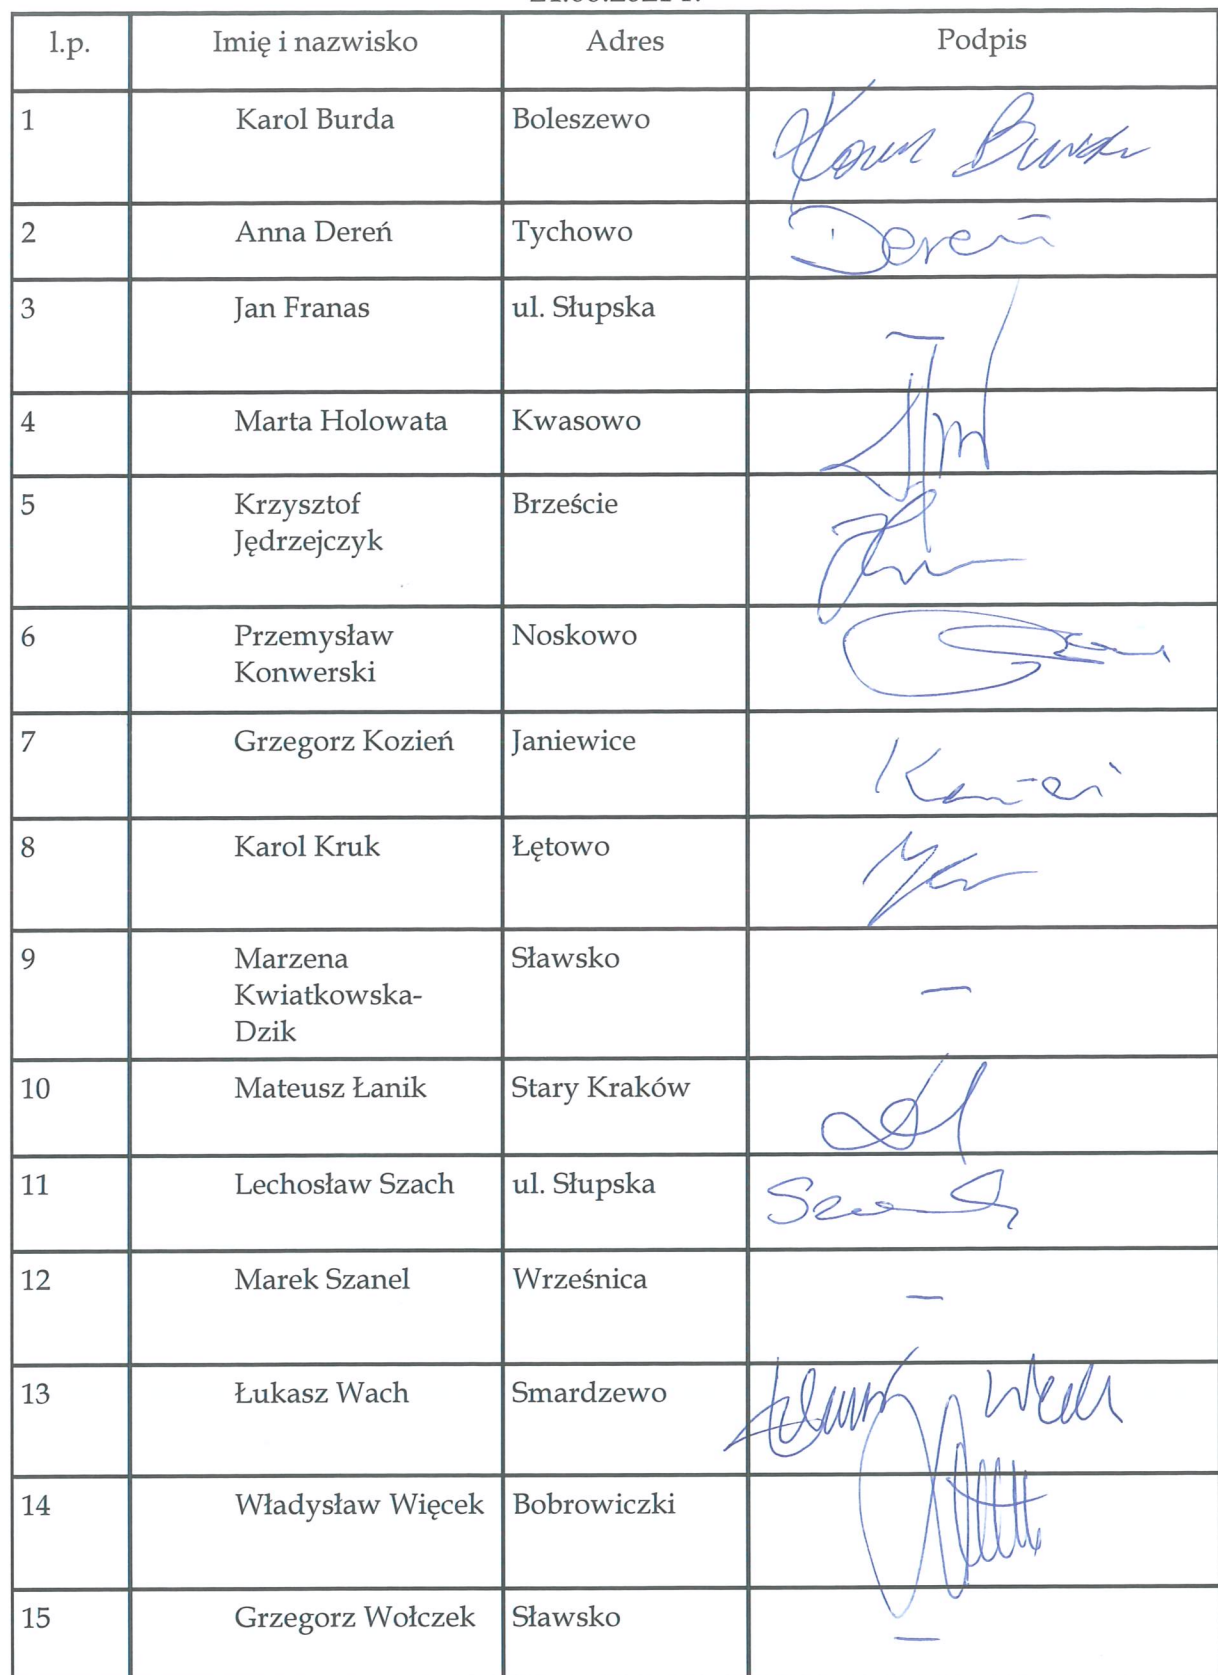 l.p. Imię i nazwisko Adres Podpis
1 Karol Burda Boleszewo
2 Anna Dereń Tychowo Dereń
3 Jan Franas ul. Słupska
4 Marta Holowata Kwasowo
5 Krzysztof Brzeście
Jędrzejczyk
6 Przemysław Noskowo
Konwerski
7 Grzegorz Kozień Janiewice
8 Karol Kruk Łętowo
9 Marzena Sławsko —
Kwiatkowska-
Dzik
10 Mateusz Łanik Stary Kraków
11 Lechosław Szach ul. Słupska
12 Marek Szanel Wrześnica —
13 Łukasz Wach Smardzewo
14 Władysław Więcek Bobrowiczki
15 Grzegorz Wołczek Sławsko —